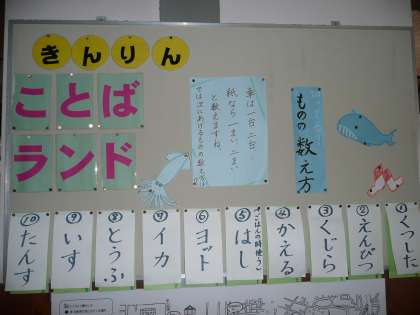 きんりん
ことば
ランド
車は一台、二台、
紙なら一まい、二まい
と数えますね。
では次にあげるものの数え方
ものの数え方
①くつした
②えんぴつ
③くじら
④かえる
⑤はし
(ごはんの時使う)
⑥ヨット
⑦イカ
⑧とうふ
⑨いす
⑩たんす